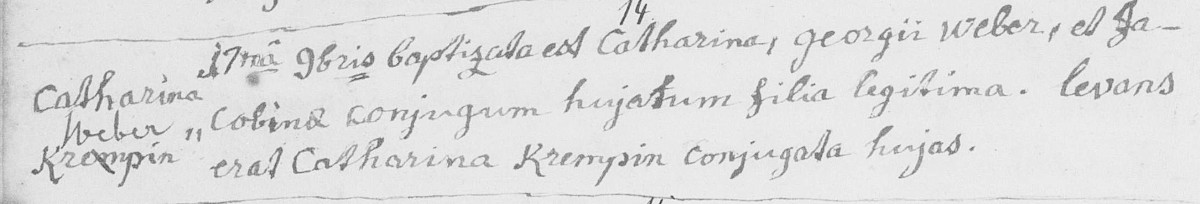 14
17mâ 9bris baptizata est Catharina, georgii Weber, et Ja-
Catharina
cobinæ conjugum hujatum filia legitima. levans
Weber "
Krempin
erat Catharina Krempin conjugata hujas.